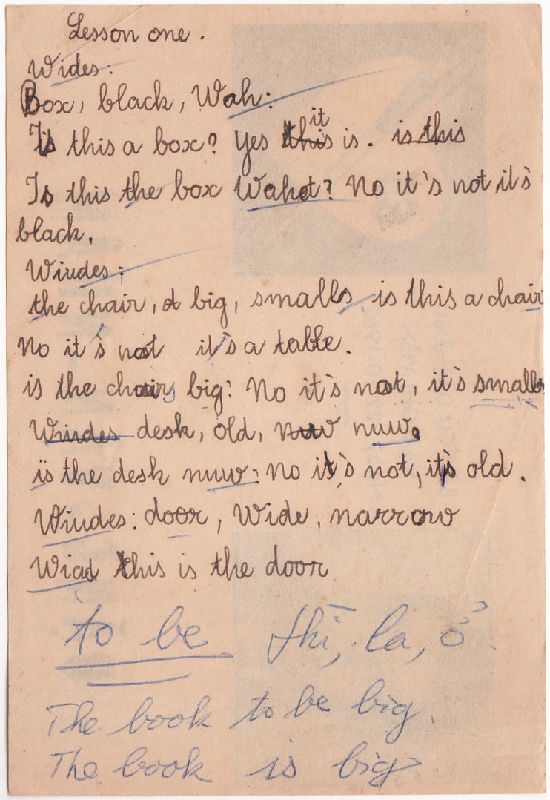 Lesson one.
Wides:
Box, black, Wah:
Is this a box? Yes this it is. is this
Is this the box Wahet? No it's not it's
black.
Wiudes:
the chair, d big, smalls is this a chair
No it's not it's a table.
is the chair, big? No it's not, it's smalls
Wiudes desk, old, nuw nuw.
is the desk nuw: No it's not, it's old.
Wiudes: door, Wide, narrow
Wiad this is the door
to be thì, là, ở.
The book to be big.
The book is big